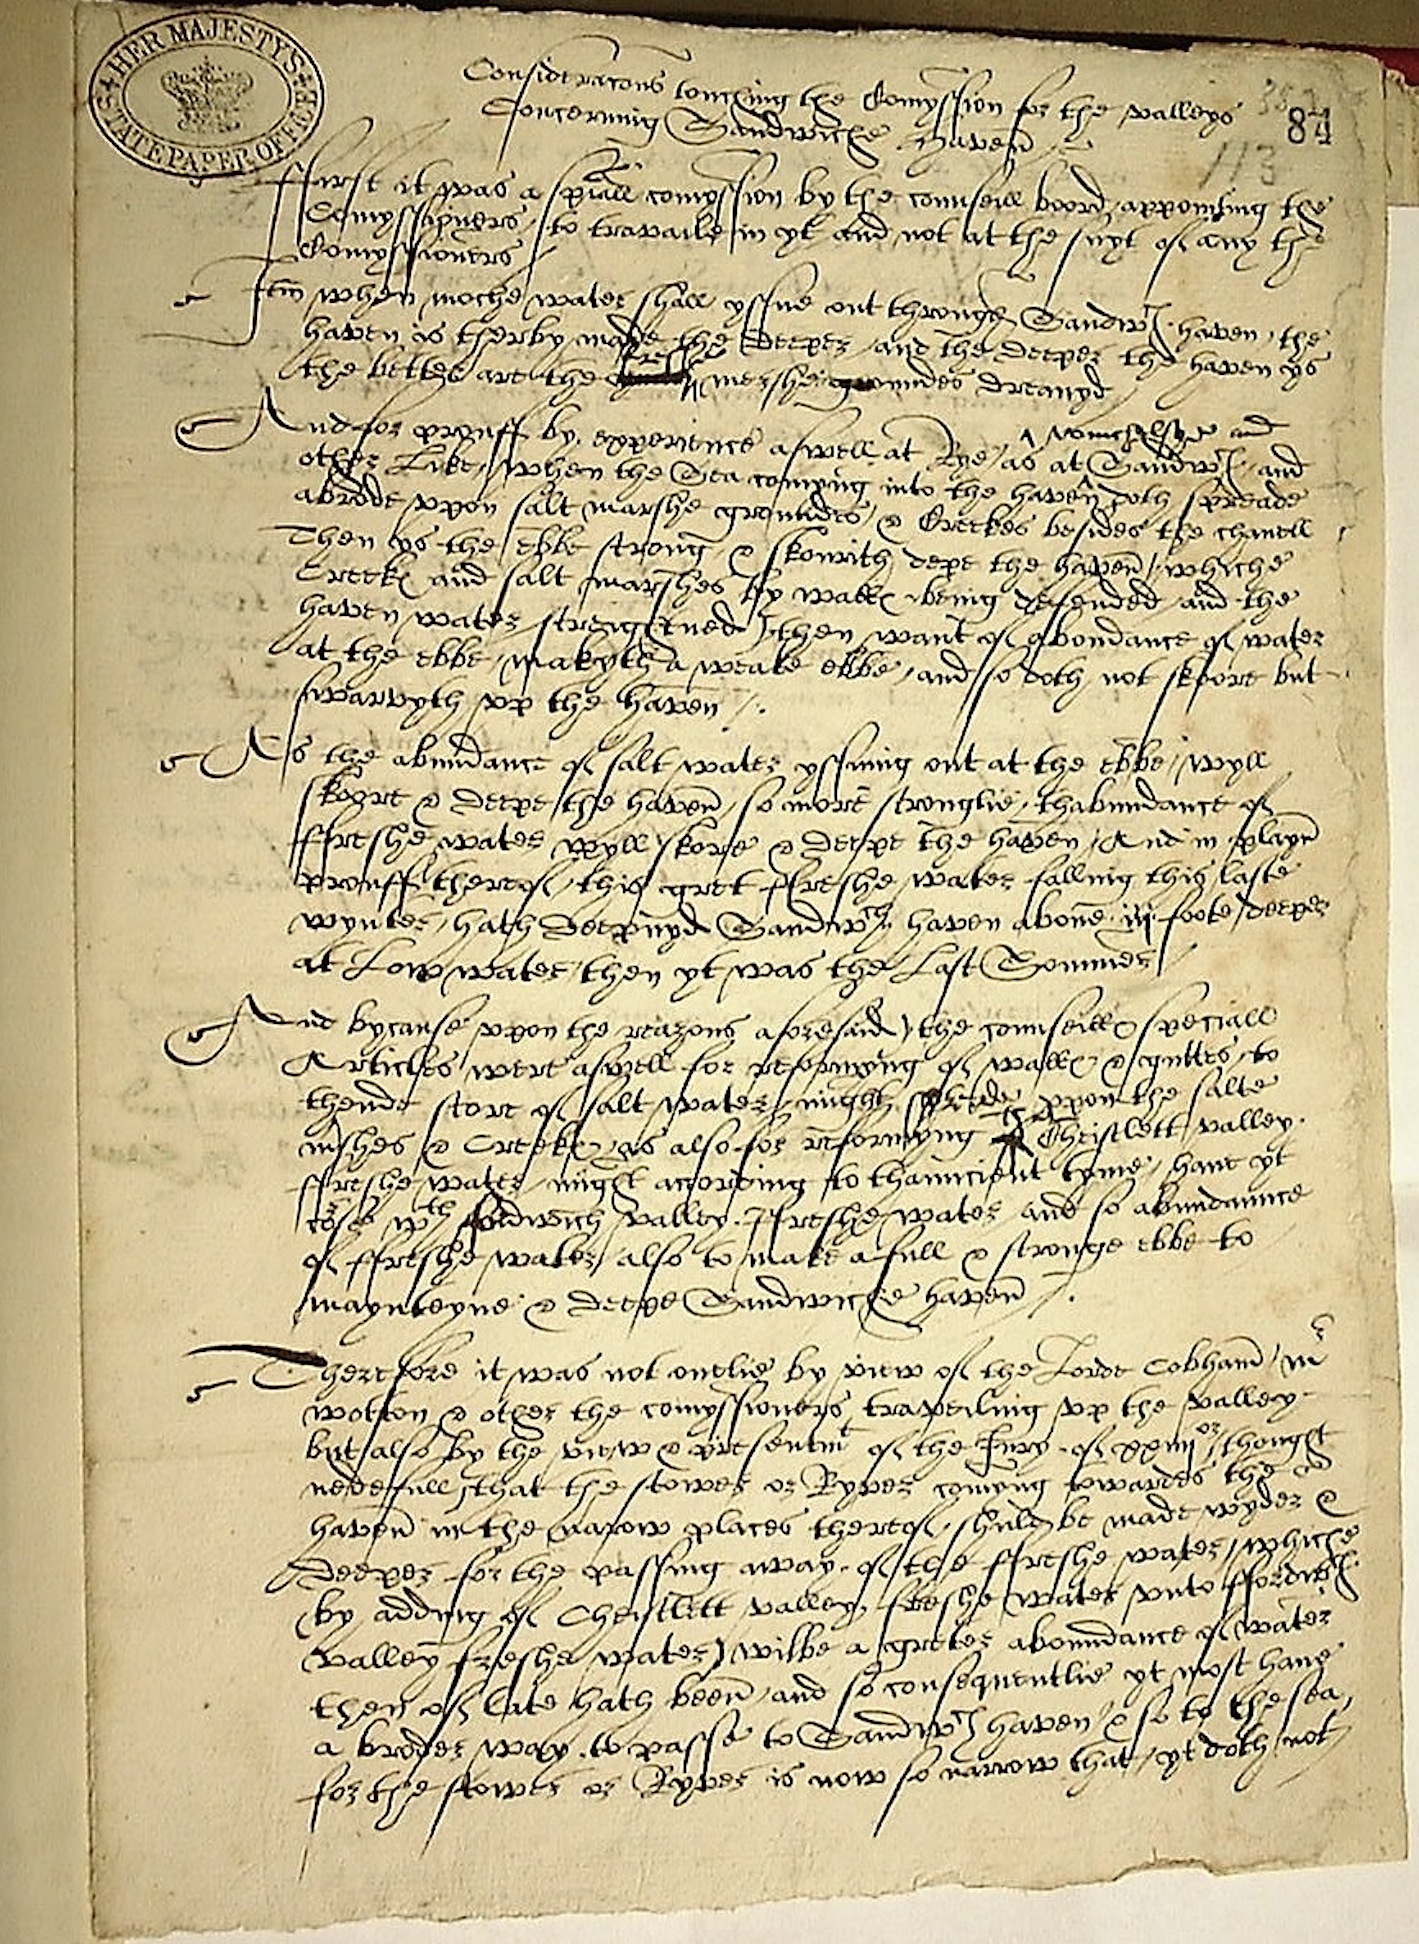 HER MAJESTY'S STATE PAPER OFFICE
Consideracons touching the Comyssion for the valleys
Concerning Sandwiche haven
84
113
ffirst it was a spiall comyssion by the counseill boord, appointing the
Comyssioners, to travaile in yt and not at the suyt of any the
Comyssioners
Itm when moche water shall yssue out through Sandwch haven, the
haven is therby made the deeper, and the deeper the haven ys
the better are the freshe mershe groundes dreanyd
And for prouff by experience aswell at Rye, Wynchelsey and
other Like, as at Sandwch, when the Sea comyng into the haven doth spreade and
abrode uppon salt marshe groundes, & Creekes besides the chanell
Then ys the ebbe strong & skowrith depe the haven, whiche
Creek and salt marshes by wall being defended, and the
haven water streightned, then want of abondance of water
at the ebbe, makyth a weake ebbe, and so doth not skoore but
swarvyth up the haven
As the abundance of salt water yssuing out at the ebbe, wyll
skoore & deepe the haven, so more stronglie, thabundance of
ffreshe water wyll skore & deepe the haven, And in playn
prouff therof, this gret ffreshe water falling this laste
wynter, hath deepnyd Sandwch haven above iij foote deeper
at Low water, then yt was the Last Sommer
And bycause uppon the reazons aforesaid, the counseill speciall
Articles were aswell for reformyng of wall & guttes, to
thende store of salt water, might sprede uppon the salte
mshes & Creek, as also for reformyng Christlett valley
ffreshe water, might according to thauncient tyme, have yt
cose wth fordwich valley ffreshe water and so abundaunce
of ffreshe water, also to make a full & stronge ebbe to
maynteyne & deepe Sandwiche haven
Therefore it was not onelie by view of the Lorde Cobham, mr
wotton & other the comyssioners, traveiling up the valley
but also by the view & presentmt of the Jury of xxiiijor, thought
nedefull, that the stower or Ryver comyng towardes the sd
haven in the narow places therof, shuld be made wyder &
deeper for the passing away of the ffreshe water, whiche
(by adding of Christlett valley freshe water unto ffordwch
valley freshe water) wilbe a greter aboundance of water
then of late hath been, and so consequentlie yt most have
a broder way to passe to Sandwch haven & so to the sea,
for the stower or Ryver is now so narrow that yt doth not